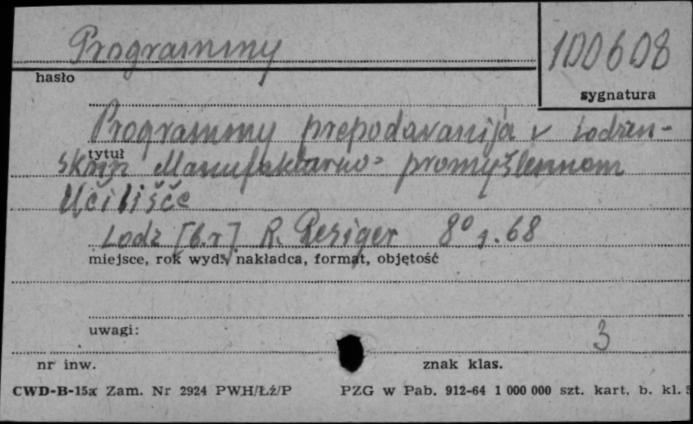 Programmy
100608
hasło
sygnatura
Programmy prepodavanija v Lodzin-
tytuł
skom Manufakturno-promyšlennom
Učilišče
Lodz [b.r]. R. Resiger 8° s. 68
miejsce, rok wyd., nakładca, format, objętość
uwagi:
3
nr inw.
znak klas.
CWD-B-15a Zam. Nr 2924 PWH/Łź/P PZG w Pab. 912-64 1 000 000 szt. kart. b. kl. 5